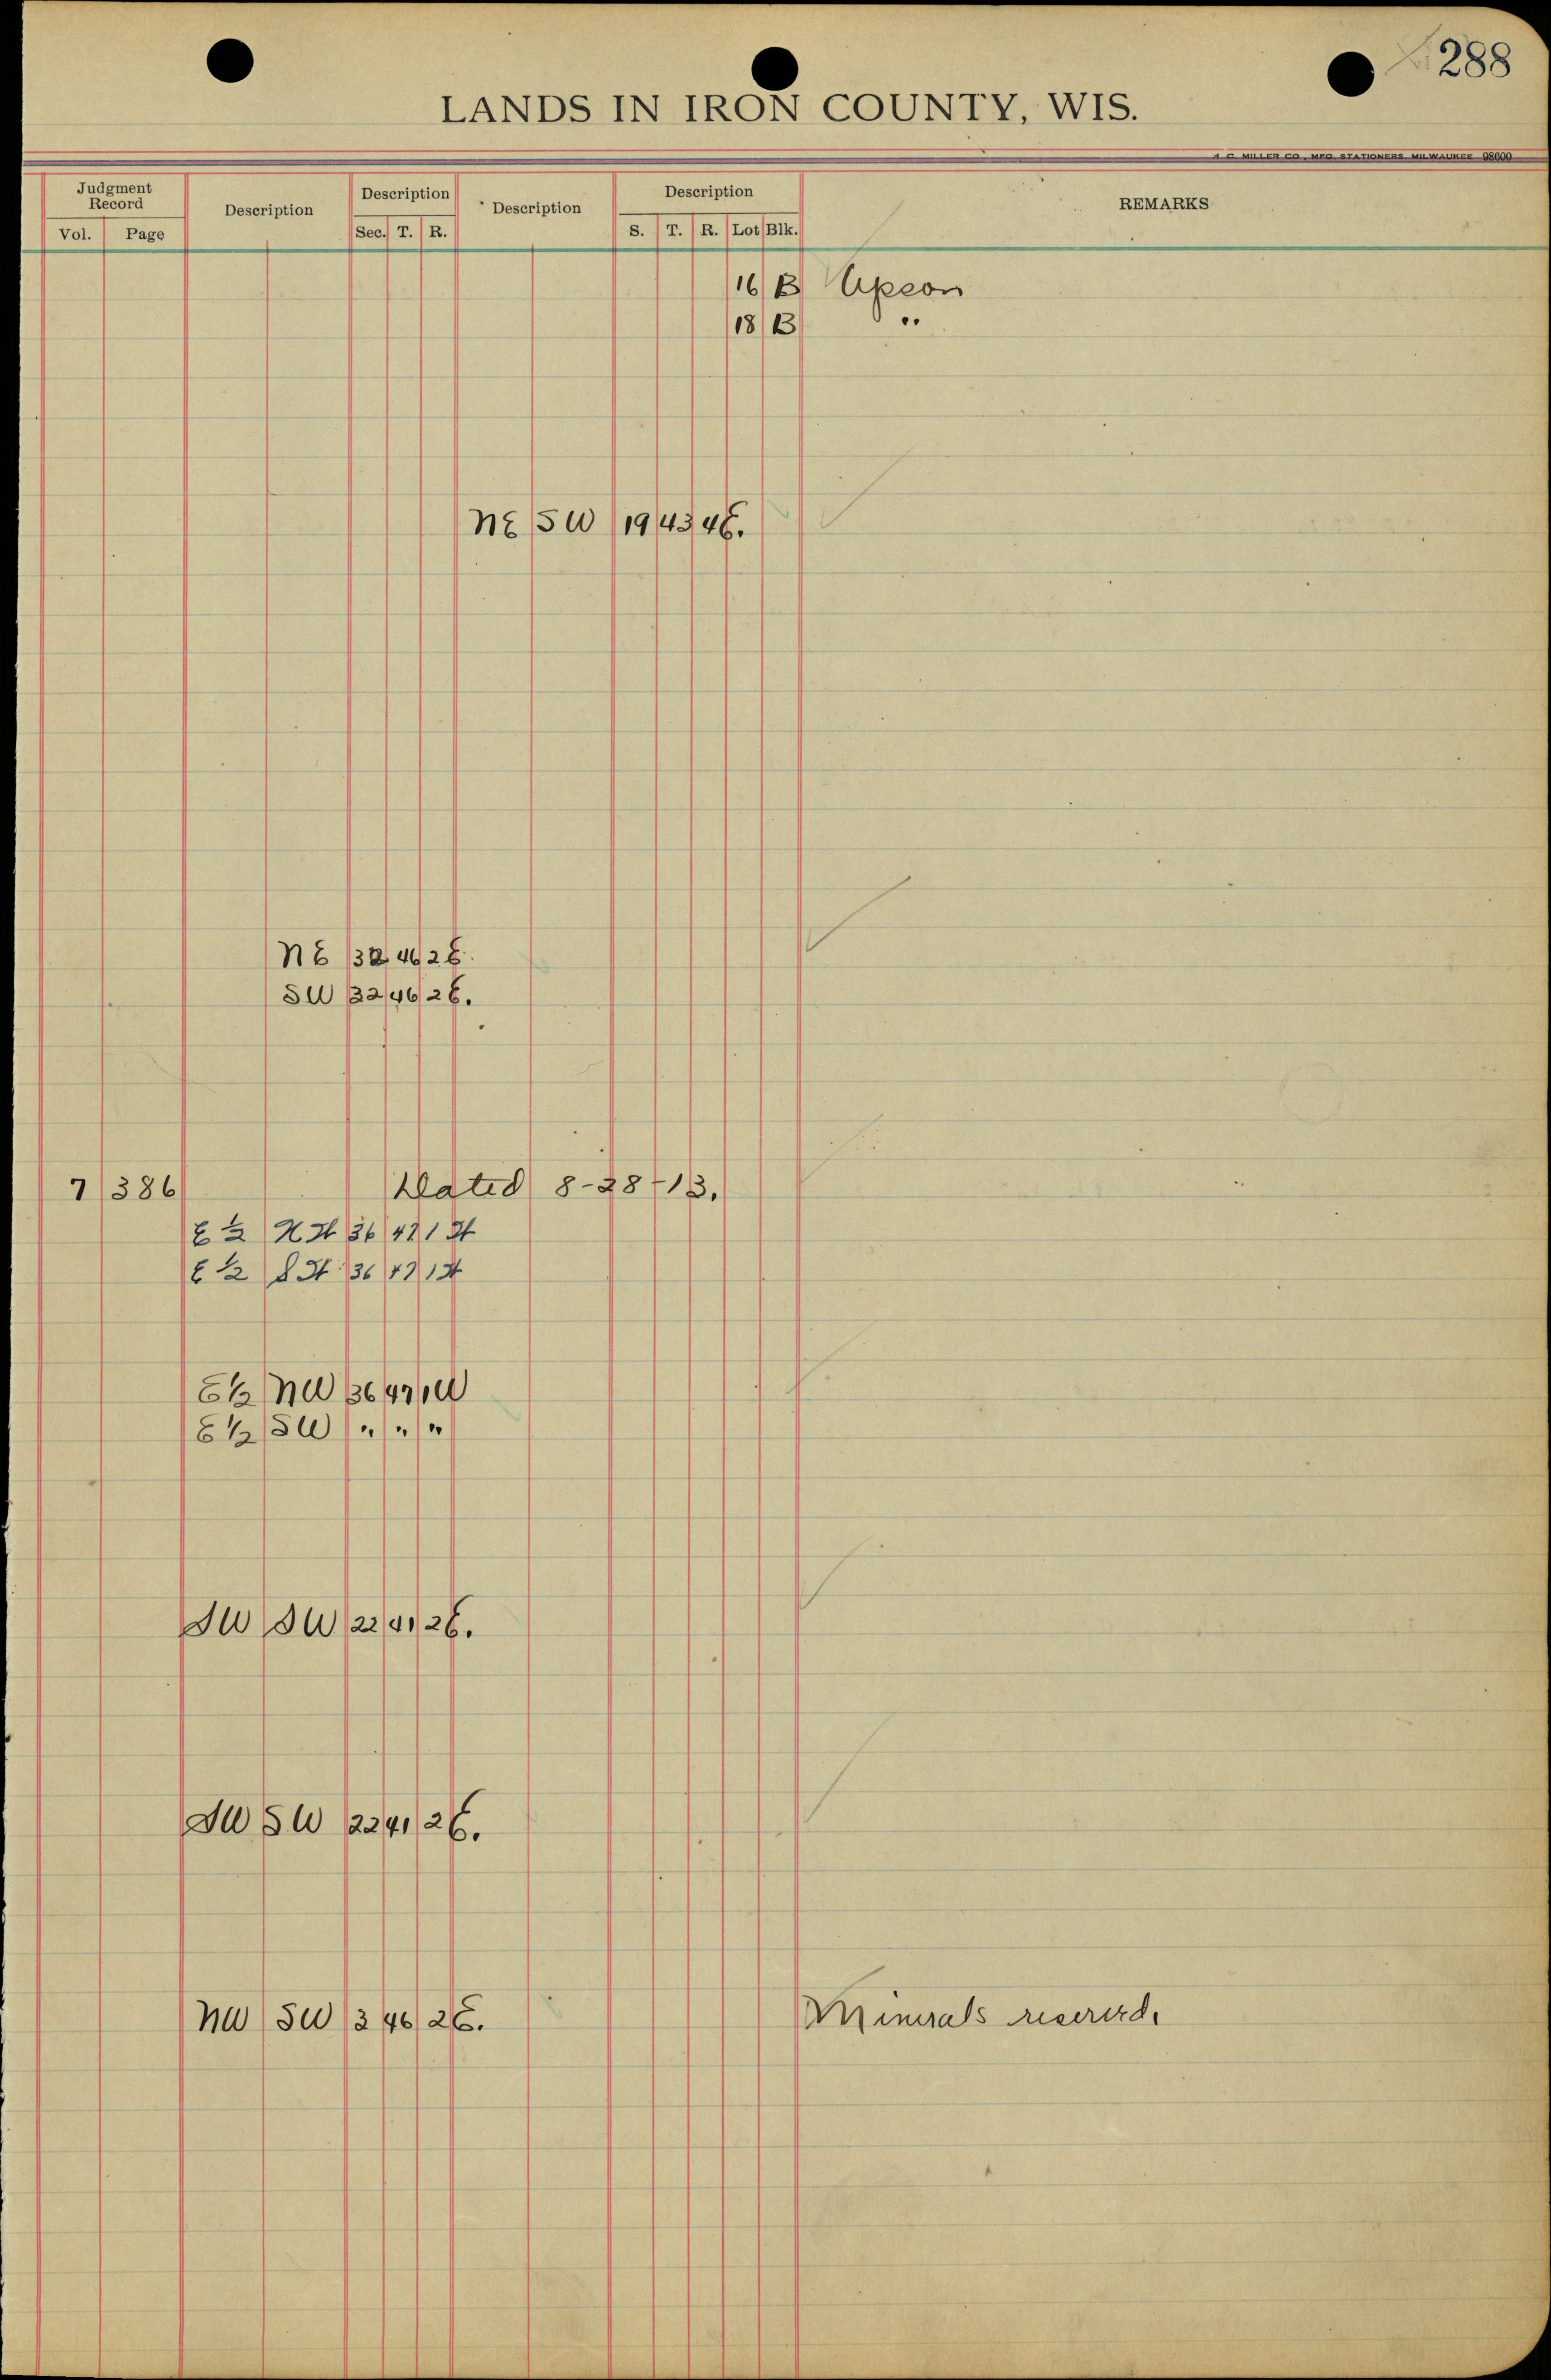 288
LANDS IN IRON COUNTY, WIS.
H. C. MILLER CO., MFG. STATIONERS, MILWAUKEE 98600
Judgment Record Description Description Description Description REMARKS
Vol. Page Sec. T. R. S. T. R. Lot Blk.
16 B Upson
18 B "
NE SW 19 43 4E.
NE 32 46 2E.
SW 32 46 2E.
7 386 Dated 8-28-13.
E ½ NW 36 47 1W
E ½ SW 36 47 1W
E½ NW 36 47 1W
E½ SW " " "
SW SW 22 41 2E.
SW SW 22 41 2E.
NW SW 3 46 2E. Minerals reserved.